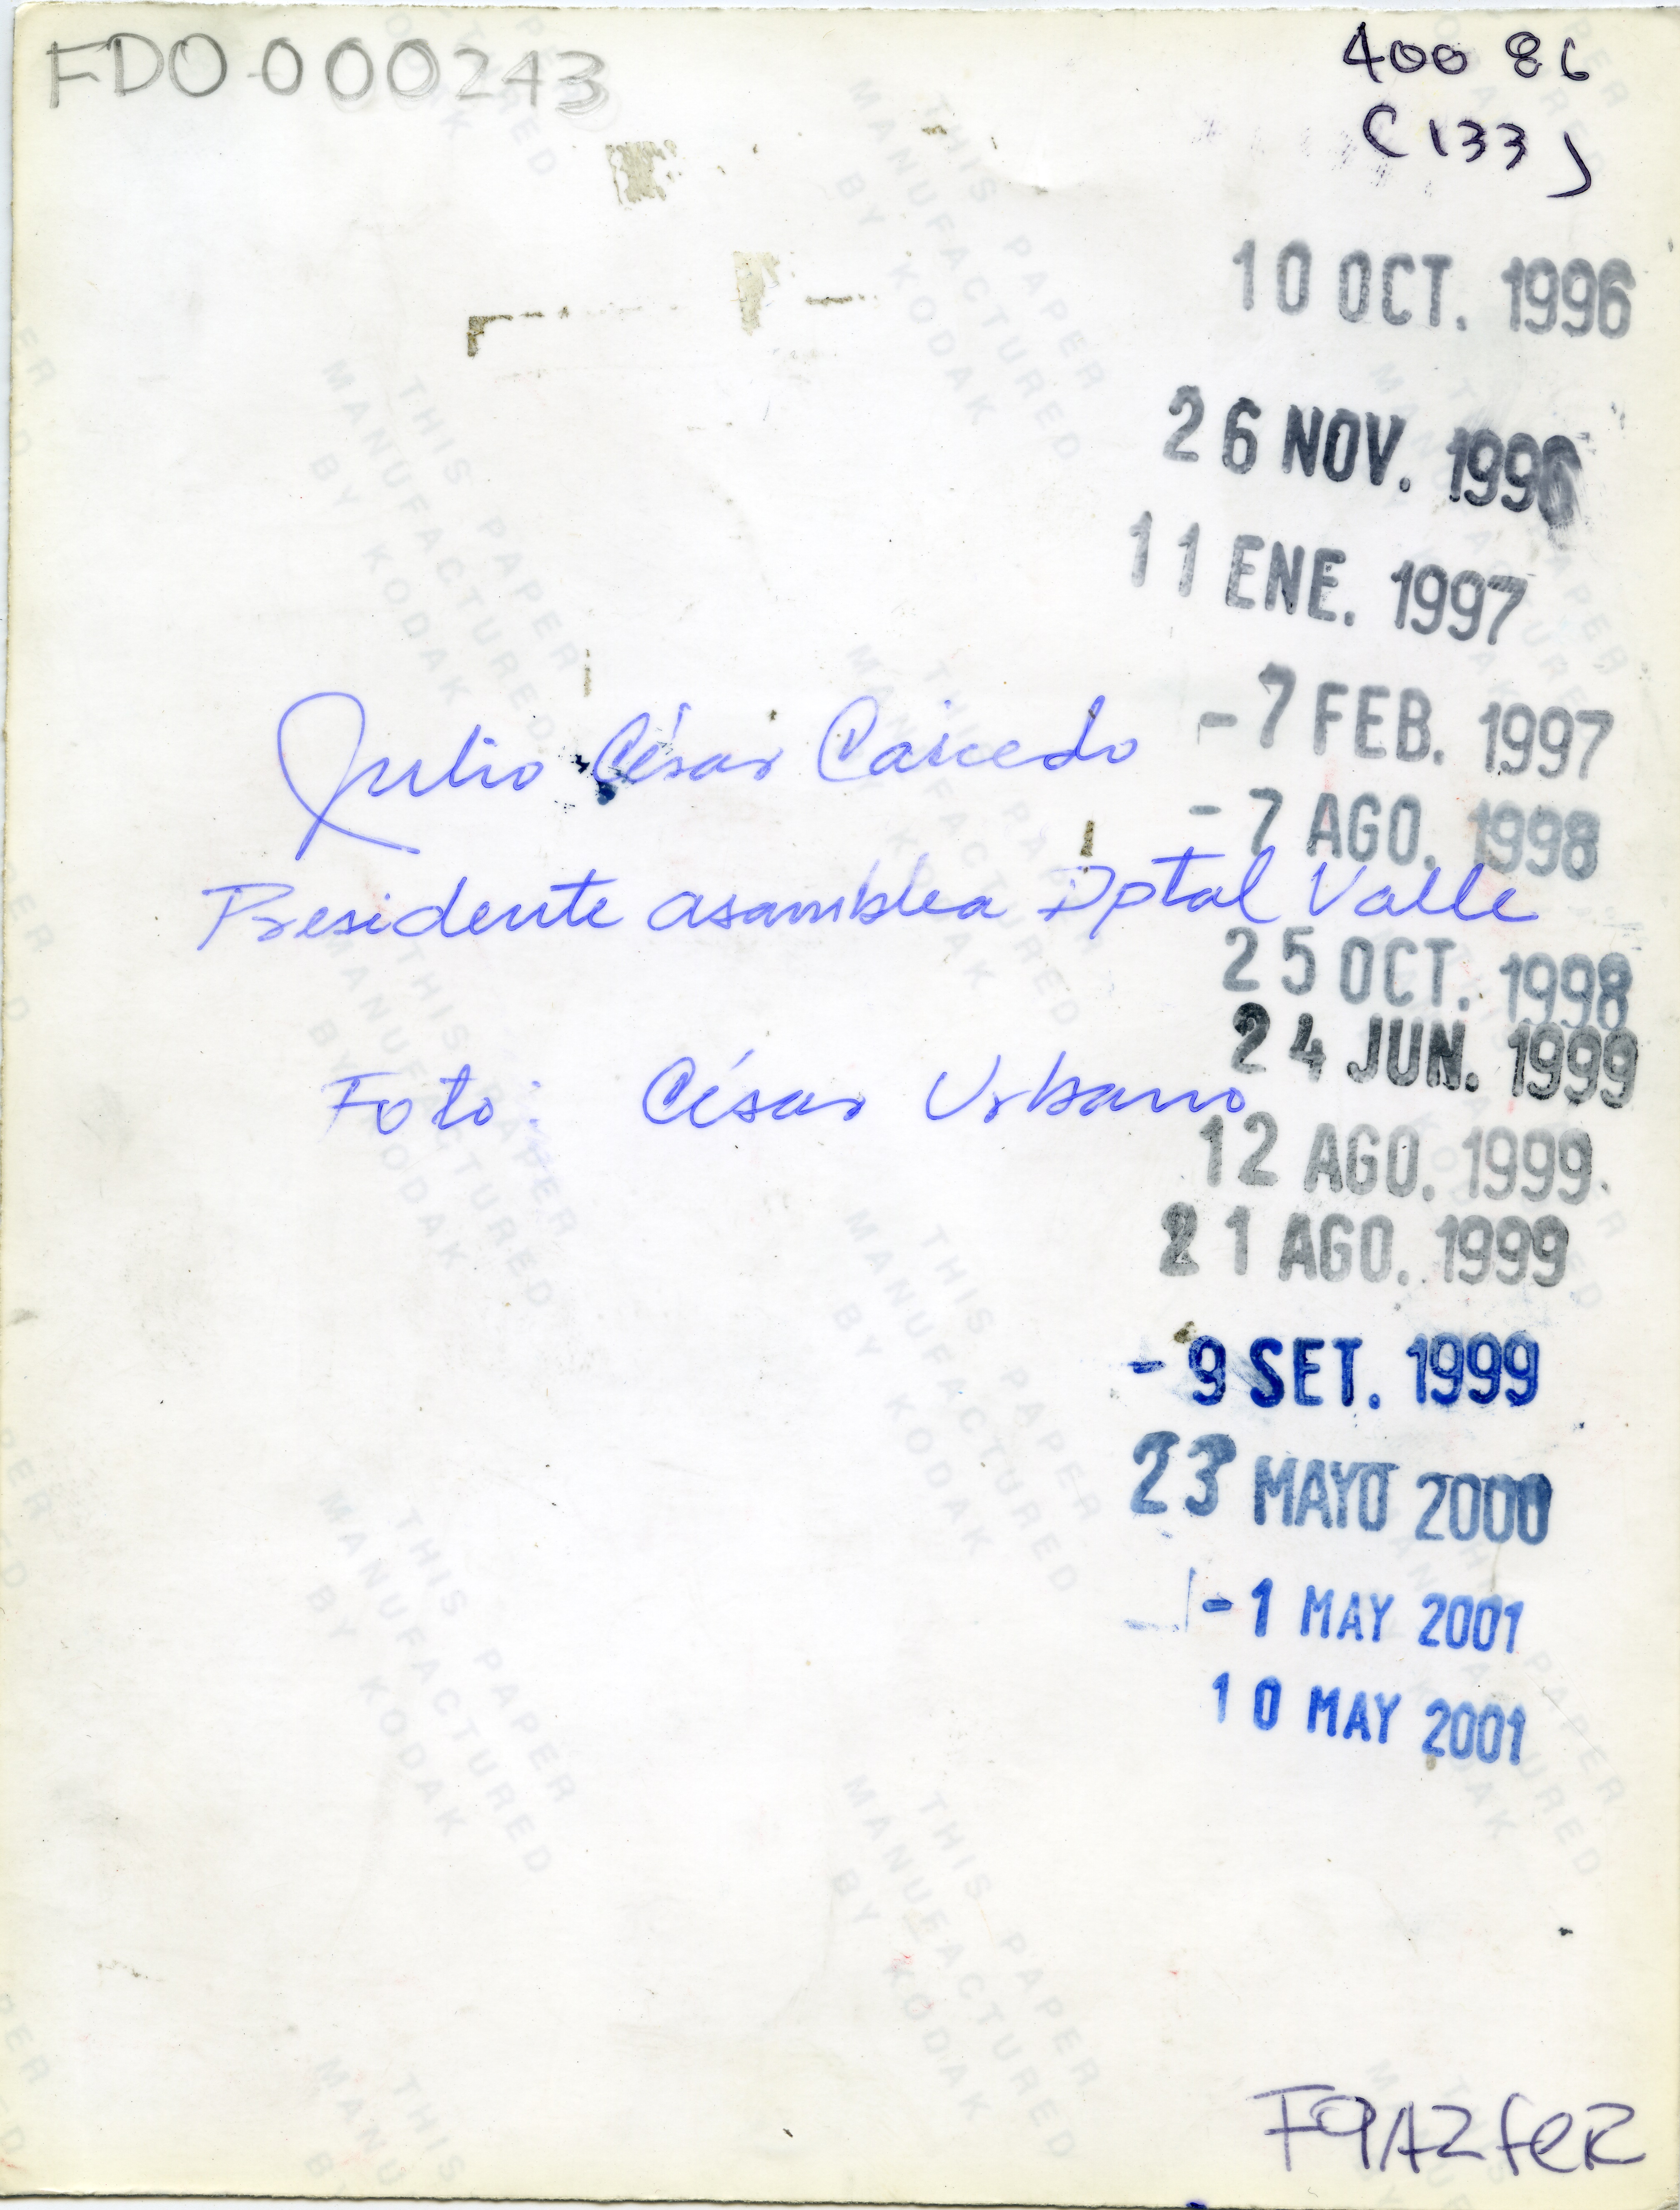 FDO-000243
400 86
(133)
10 OCT. 1996
26 NOV. 1996
11 ENE. 1997
-7 FEB. 1997
Julio César Caicedo
-7 AGO. 1998
Presidente asamblea Dptal Valle
25 OCT. 1998
24 JUN. 1999
Foto: César Urbano
12 AGO. 1999
21 AGO. 1999
-9 SET. 1999
23 MAYO 2000
-1 MAY 2001
10 MAY 2001
THIS PAPER
MANUFACTURED
BY KODAK